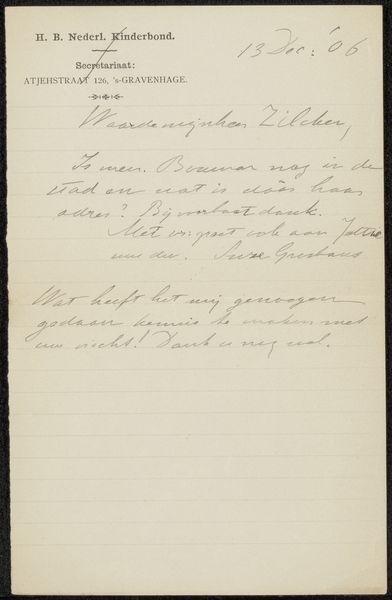 H. B. Nederl. Kinderbond.
Secretariaat:
ATJEHSTRAAT 126, 's-GRAVENHAGE.
13 Dec: '06
Waarde mijnheer Zilcken,
Is mevr. Bouwar nog in de
stad en wat is dáár haar
adres? Bij voorbaat dank.
Met vr. groet ook aan
uw dw. Suze
Wat heeft het mij genoegen
gedaan kennis te maken met
uw nicht! Dank u nog wel.